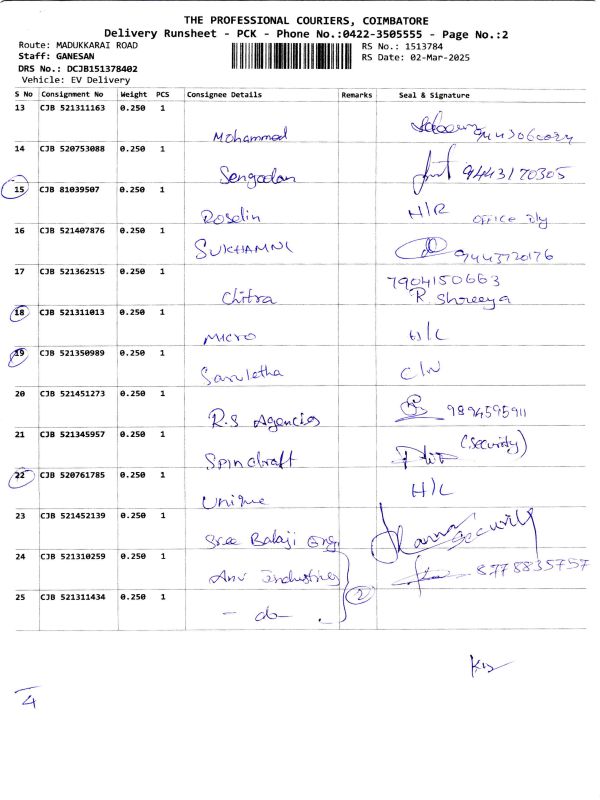 THE PROFESSIONAL COURIERS, COIMBATORE
Delivery Runsheet - PCK - Phone No.:0422-3505555 - Page No.:2
Route: MADUKKARAI ROAD
RS No.: 1513784
Staff: GANESAN
RS Date: 02-Mar-2025
DRS No.: DCJB151378402
Vehicle: EV Delivery
S No Consignment No Weight PCS Consignee Details Remarks Seal & Signature
13 CJB 521311163 0.250 1
Mohammed
14 CJB 520753088 0.250 1
Sengodan 9443170305
15 CJB 81039507 0.250 1
Roselin H/R office
16 CJB 521407876 0.250 1
SUKHAMNI 9443720176
17 CJB 521362515 0.250 1
7904150663
Chitra R. Shreeya
18 CJB 521311013 0.250 1
MICRO
19 CJB 521350989 0.250 1
20 CJB 521451273 0.250 1
R.S Agencies 9894595911
21 CJB 521345957 0.250 1
(Security)
Spin craft
22 CJB 520761785 0.250 1
Unique H/C
23 CJB 521452139 0.250 1
Sree Balaji Eng Security
24 CJB 521310259 0.250 1
Industries 8778835757
25 CJB 521311434 0.250 1
- do - 2
4